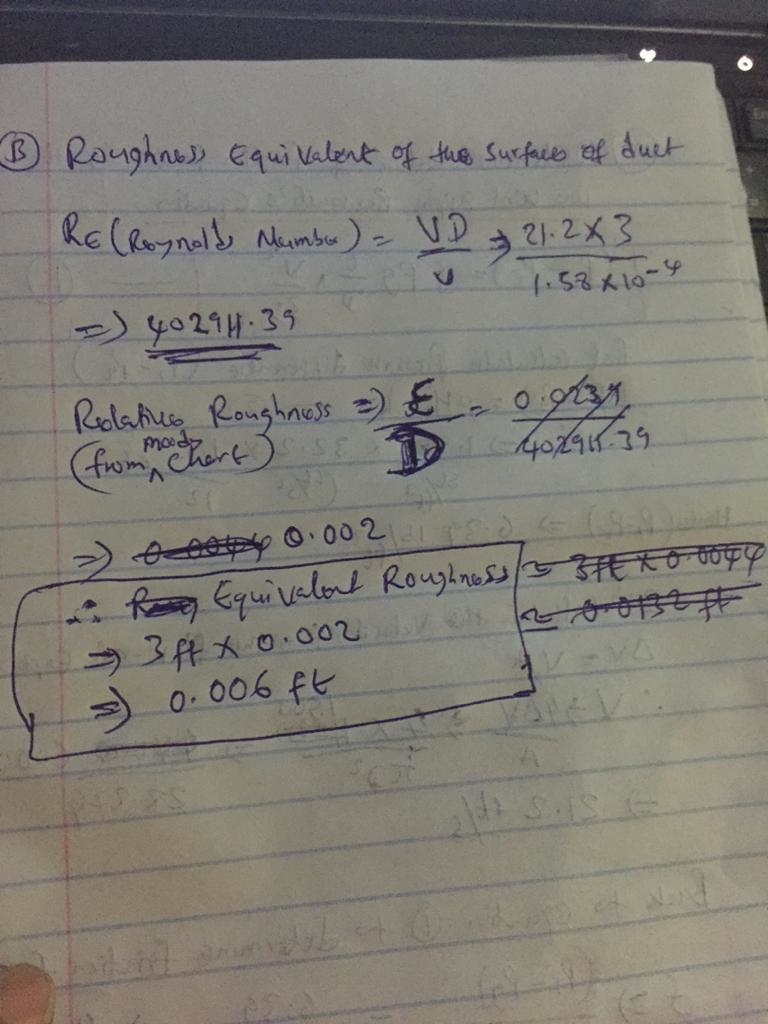 Ⓑ Roughness Equivalent of the surface of duct
RE (Reynolds Number) = VD/υ ⇒ 21.2 × 3 / 1.58 × 10⁻⁴
⇒ 402911.39
Relative Roughness ⇒ Ɛ/D = 0.0239 / 402911.39
(from moody chart)
⇒ 0.0044 0.002
∴ Equivalent Roughness = 3ft × 0.0044
⇒ 3 ft × 0.002 = 0.0132 ft
⇒ 0.006 ft